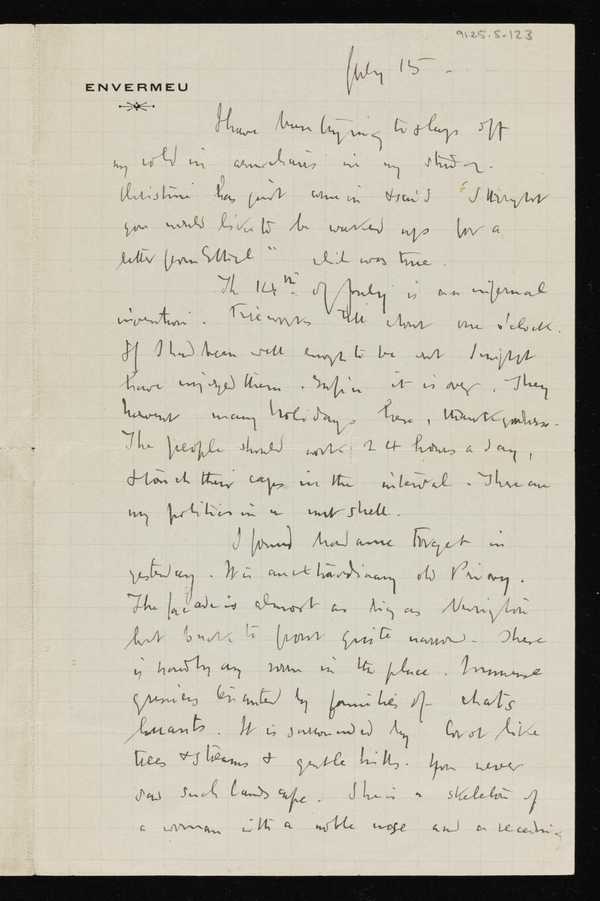 9125.5.123
July 15.
ENVERMEU
I have been trying to sleep off
my cold in armchairs in my studio.
Christine has just come in & said "I thought
you would like to be waked up for a
letter from Ethel" which was true.
The 14th of July is an infernal
invention. Fireworks till about one o'clock.
If I had been well enough to be out I might
have enjoyed them. Enfin it is over. They
havent many holidays here, thank goodness.
The people should work 24 hours a day,
& touch their caps in the interval. These are
my politics in a nut shell.
I found Madame Forget in
yesterday. It is an extraordinary old Priory.
The facade is almost as big as
but back to front quite narrow. There
is hardly any room in the place. Immense
greniers tenanted by families of chats
huants. It is surrounded by Corot like
trees & streams & gentle hills. You never
saw such landscape. She is a skeleton of
a woman with a noble nose and a receding